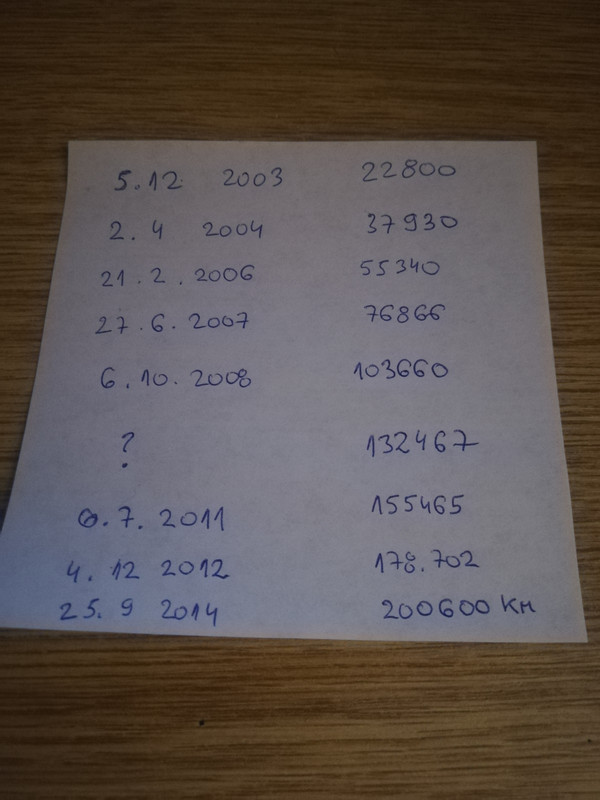 5.12 2003 22800
2. 4 2004 37930
21. 2. 2006 55340
27.6.2007 76866
6.10.2008 103660
? 132467
6.7.2011 155465
4. 12 2012 178.702
25. 9 2014 200600 KM